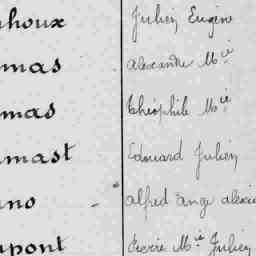 houx Julien Eugène
mas Alexandre M^ie
mas théophile M^ie
mast Edouard Julien
no alfred ange alexis
pont Pierre M^ie Julien